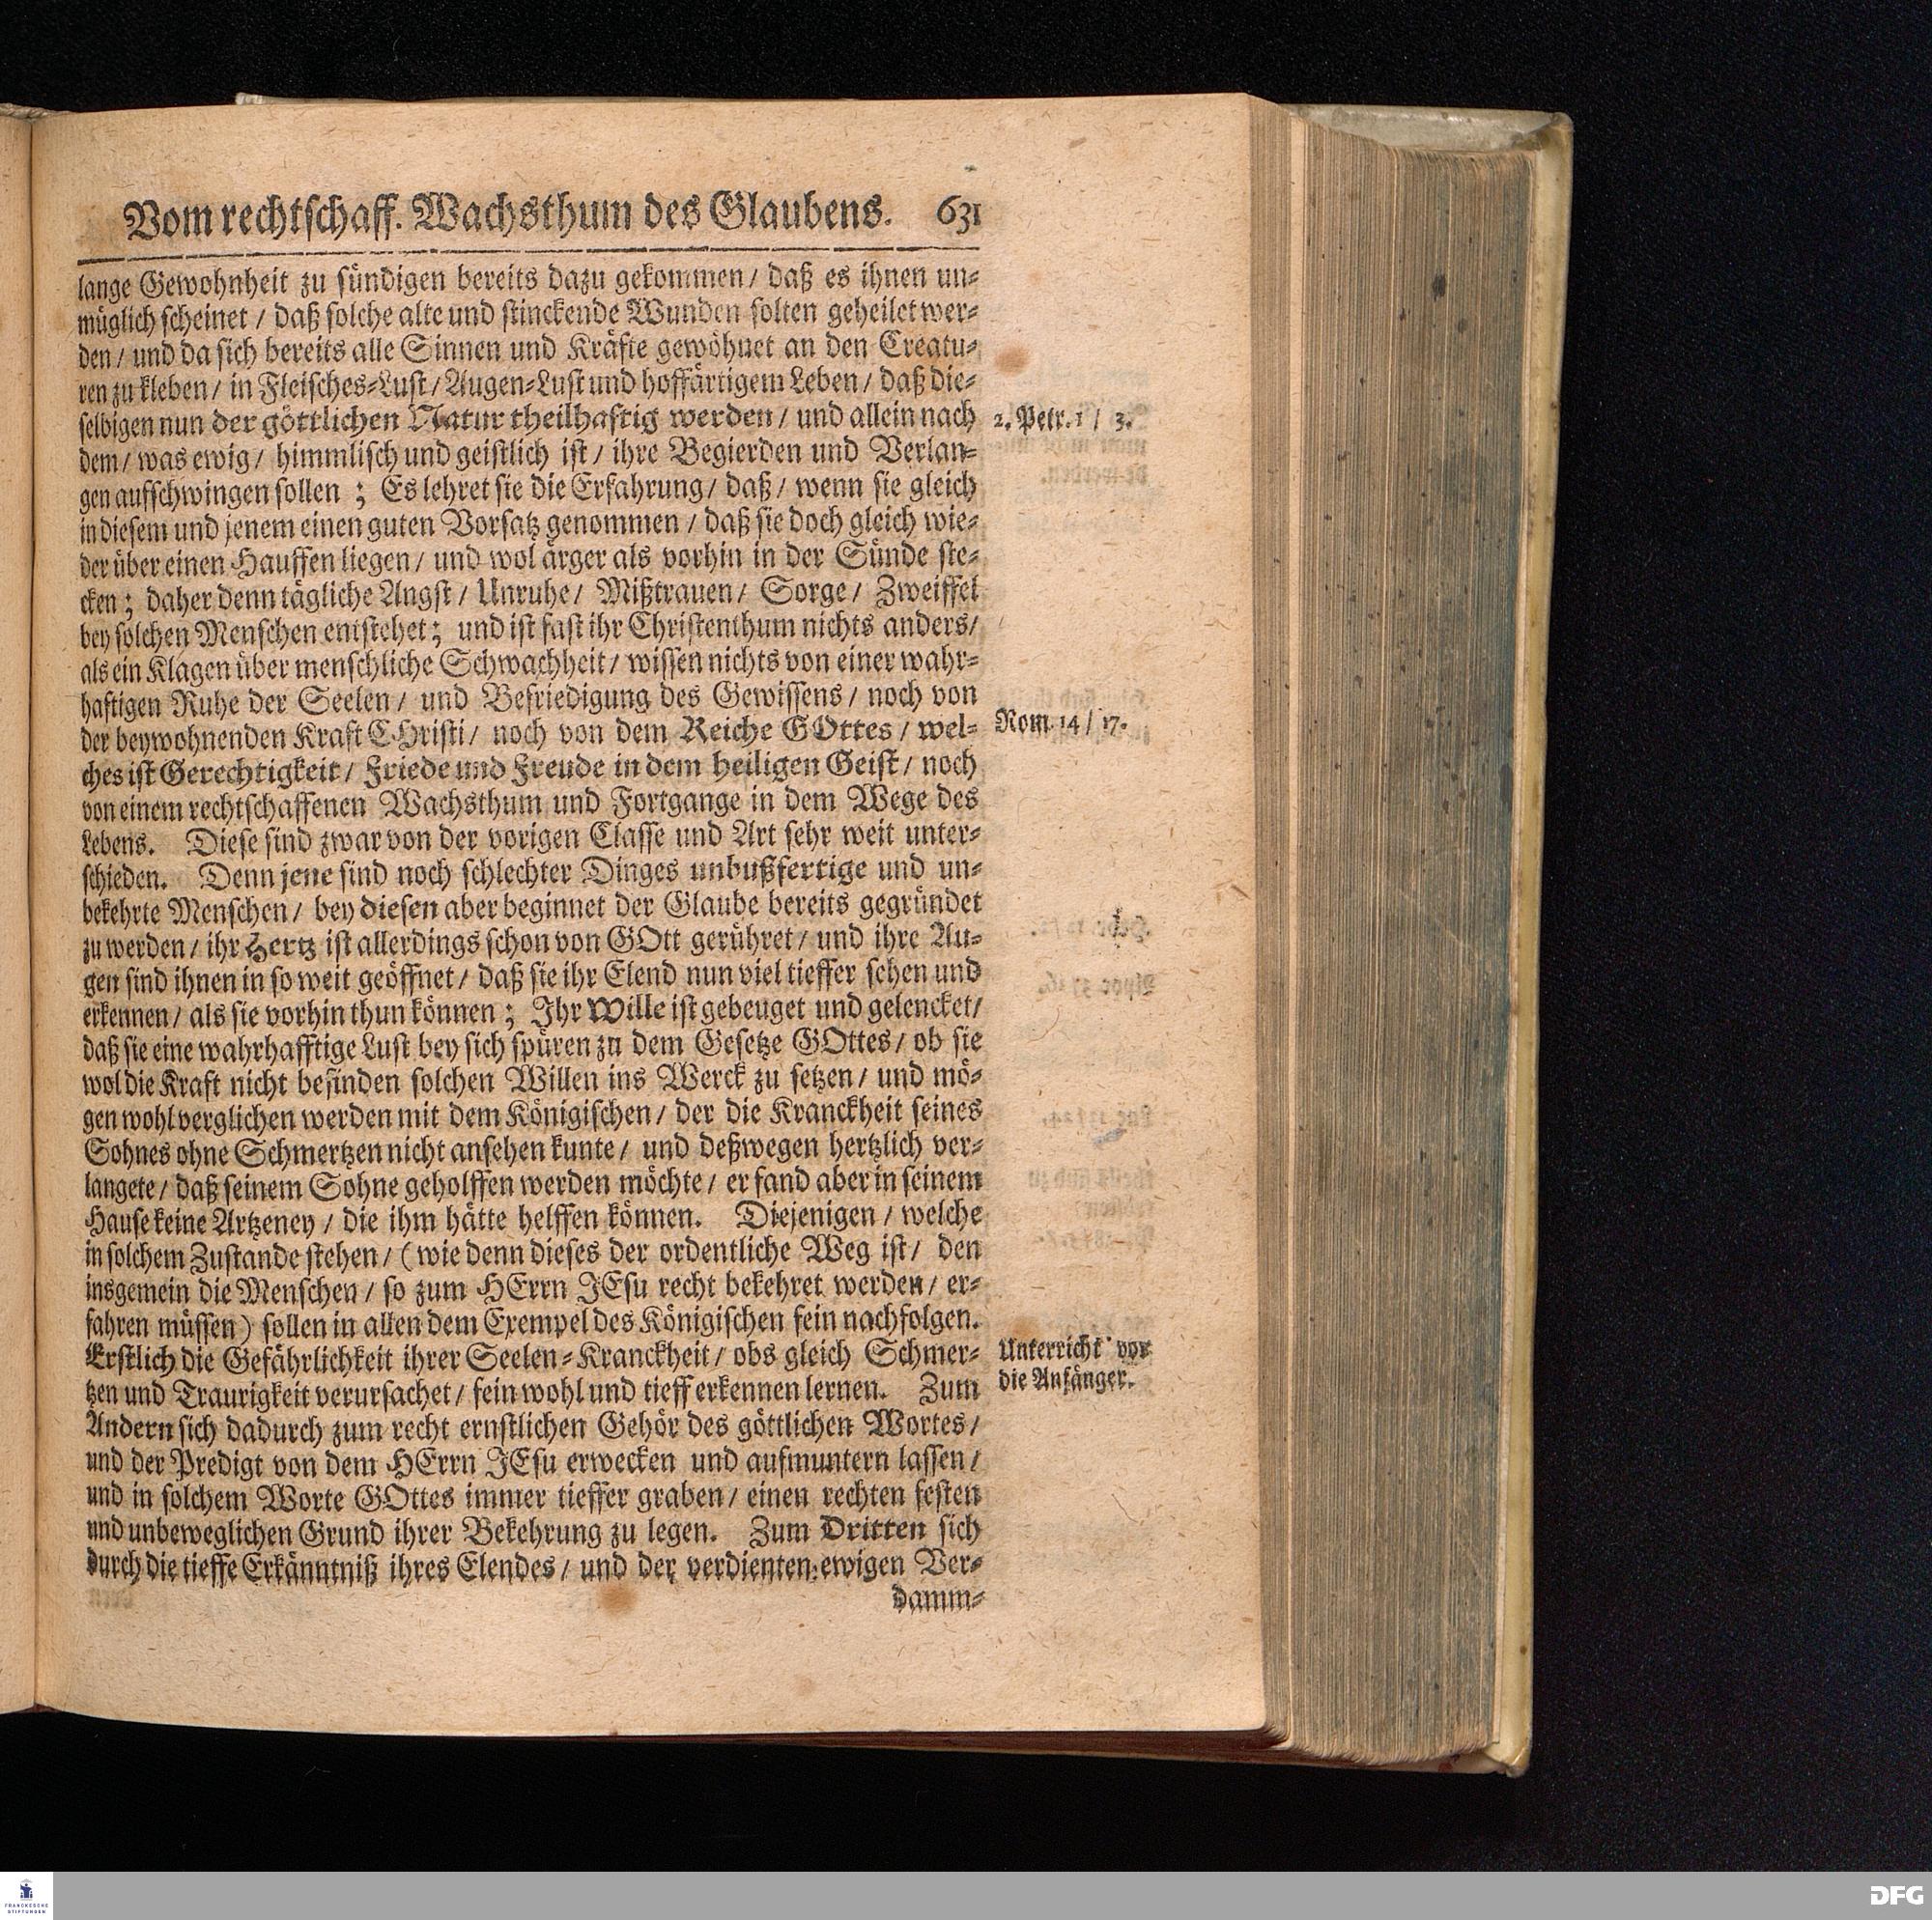 Vom rechtschaff. Wachsthum des Glaubens. 631
lange Gewohnheit zu sündigen bereits dazu gekommen / daß es ihnen un-
müglich scheinet / daß solche alte und stinckende Wunden solten geheilet wer-
den / und da sich bereits alle Sinnen und Kräfte gewöhnet an den Creatu-
ren zu kleben / in Fleisches-Lust / Augen-Lust und hoffärtigem Leben / daß die-
selbigen nun der göttlichen Natur theilhaftig werden / und allein nach
2. Petr. 1 / 3.
dem / was ewig / himmlisch und geistlich ist / ihre Begierden und Verlan-
gen aufschwingen sollen ; Es lehret sie die Erfahrung / daß / wenn sie gleich
in diesem und jenem einen guten Vorsatz genommen / daß sie doch gleich wie-
der über einen Hauffen liegen / und wol ärger als vorhin in der Sünde ste-
cken ; daher denn tägliche Angst / Unruhe / Mißtrauen / Sorge / Zweiffel
bey solchen Menschen entstehet ; und ist fast ihr Christenthum nichts anders /
als ein Klagen über menschliche Schwachheit / wissen nichts von einer wahr-
haftigen Ruhe der Seelen / und Befriedigung des Gewissens / noch von
der beywohnenden Kraft CHristi / noch von dem Reiche GOttes / wel-
Rom. 14 / 17.
ches ist Gerechtigkeit / Friede und Freude in dem heiligen Geist / noch
von einem rechtschaffenen Wachsthum und Fortgange in dem Wege des
Lebens. Diese sind zwar von der vorigen Classe und Art sehr weit unter-
schieden. Denn jene sind noch schlechter Dinges unbußfertige und un-
bekehrte Menschen / bey diesen aber beginnet der Glaube bereits gegründet
zu werden / ihr Hertz ist allerdings schon von GOtt gerühret / und ihre Au-
gen sind ihnen in so weit geöffnet / daß sie ihr Elend nun viel tieffer sehen und
erkennen / als sie vorhin thun können ; Ihr Wille ist gebeuget und gelencket /
daß sie eine wahrhafftige Lust bey sich spüren zu dem Gesetze GOttes / ob sie
wol die Kraft nicht befinden solchen Willen ins Werck zu setzen / und mö-
gen wohl verglichen werden mit dem Königischen / der die Kranckheit seines
Sohnes ohne Schmertzen nicht ansehen kunte / und deßwegen hertzlich ver-
langete / daß seinem Sohne geholffen werden möchte / er fand aber in seinem
Hause keine Artzeney / die ihm hätte helffen können. Diejenigen / welche
in solchem Zustande stehen / ( wie denn dieses der ordentliche Weg ist / den
insgemein die Menschen / so zum HErrn JEsu recht bekehret werden / er-
fahren müssen ) sollen in allen dem Exempel des Königischen fein nachfolgen.
Erstlich die Gefährlichkeit ihrer Seelen-Kranckheit / obs gleich Schmer-
Unterricht vor
die Anfänger.
tzen und Traurigkeit verursachet / fein wohl und tieff erkennen lernen. Zum
Andern sich dadurch zum recht ernstlichen Gehör des göttlichen Wortes /
und der Predigt von dem HErrn JEsu erwecken und aufmuntern lassen /
und in solchem Worte GOttes immer tieffer graben / einen rechten festen
und unbeweglichen Grund ihrer Bekehrung zu legen. Zum Dritten sich
durch die tieffe Erkänntniß ihres Elendes / und der verdienten ewigen Ver-
damm-
FRANCKESCHE
STIFTUNGEN
DFG